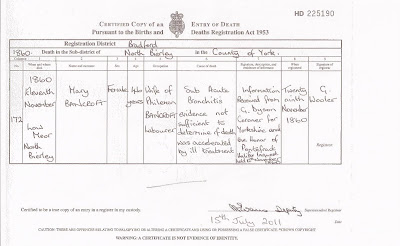 HD 225190
CERTIFIED COPY of an ENTRY OF DEATH
Pursuant to the Births and Deaths Registration Act 1953
Registration District Bradford
1860. Death in the Sub-district of North Bierley in the County of York.
Columns 1 2 3 4 5 6 7 8 9
No. When and where died Name and surname Sex Age Occupation Cause of death Signature, description, and residence of informant When registered Signature of registrar
172
1860
Eleventh
November
Low
Moor
North
Bierley
Mary
BANCROFT
Female
years
Wife of
Philemon
BANCROFT
Labourer
Sub Acute
Bronchitis
evidence not
sufficient to
determine if death
was accelerated
by ill treatment
Information
received from
G. Dyson
Coroner for
Yorkshire and
the honor of
Pontefract
Twenty
ninth
November
1860
G.
Registrar
Certified to be a true copy of an entry in a register in my custody.
Deputy Superintendent Registrar
15th July 2011 Date
CAUTION: THERE ARE OFFENCES RELATING TO FALSIFYING OR ALTERING A CERTIFICATE AND USING OR POSSESSING A FALSE CERTIFICATE. ©CROWN COPYRIGHT
WARNING: A CERTIFICATE IS NOT EVIDENCE OF IDENTITY.